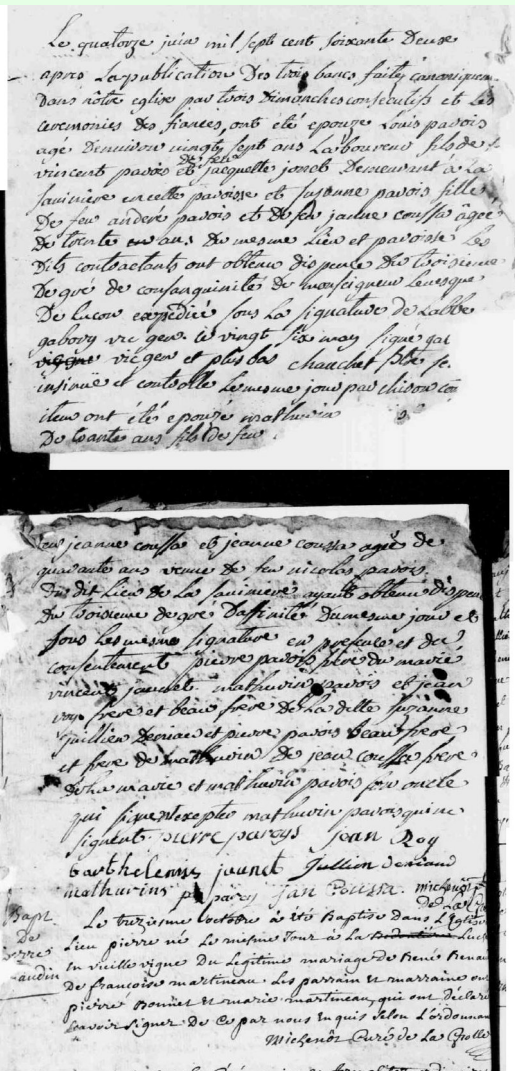 Le quatorze juin mil sept cent soixante Deuse
apres La publication Des trois bancs faites canoniquem
Dans nôtre eglise par trois Dimanches consecutifs et Les
ceremonies des fiances, ont été epouzé Louis pavois
agé Denuiron uingt sept ans Laboureur fils de
vincent pavois et de feu jacquette jonet Demeurant à La
faviniere en cette paroisse et suzanne pavois fille
De feu andere pavois et de feu janne coussa âgée
De trente ans Du mesme Lieu et paroisse Les
Dits contractants ont obtenu dispence Du troisieme
De gré de consanguinité de monseigneur Leuesque
De Lucon expedieé sous La signature de Labbe
gabory vic gen. le vingt six may signé gab
vic gen et plus bas chauchet pbre se.
insinüé et controlle Le mesme jour par chison con
item ont été epouzé mathurin
De trante ans fils de feu
feu jeanne coussa et jeanne coussa agée de
quarante ans veuve de feu nicolas pavois
Du dit Lieu de La faviniere ayant obtenu dispen
Du troisieme de gré Daffinité Du mesme jour et
sous Les mesme signature en presence et du
consentement pierre pavois pere du marié
vincent jaunet mathurin pavois et jean
roy frere et beau frere de La ditte suzanne
jullien Deniau et pierre pavois beau frere
et frere de mathurin de jean coussa frere
de La marié et mathurin pavois son oncle
qui signent excepter mathurin pavois qui ne
signent pierre paroys Jean Roy
barthelemy jaunet Jullien Deniaud
mathurins paroy Jan Coussa Michenôt
de La
Bapt
De
pierre
audin
Le treziesme octobre à êté Baptisé dans L'Eglise
Lieu pierre né Le mesme Jour à La
en vieille vigne Du Legitime mariage de René Renau
De francoise martineau Les parrain et marraine on
pierre Bonnet et marie martineau, qui ont déclaré
scavoir signer De ce par nous Enquis selon L'ordonnan
Michenôt Curé de La Grolle